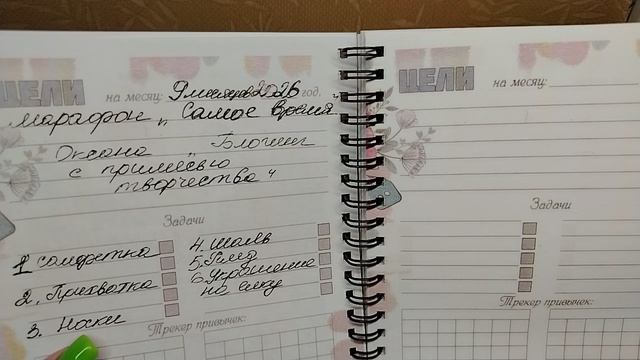 ЦЕЛИ
на месяц: 9 месяцев 2026 год.
Марафон „Самое Время"
Оксана „Блогинг
с примесью
творчества"
Задачи
1 салфетка
2. Прихватка
3. Носки
4. Шаль
5,
6. Украшение
на ёлку
Трекер привычек:
ЦЕЛИ
на месяц:
Задачи
Трекер привычек: